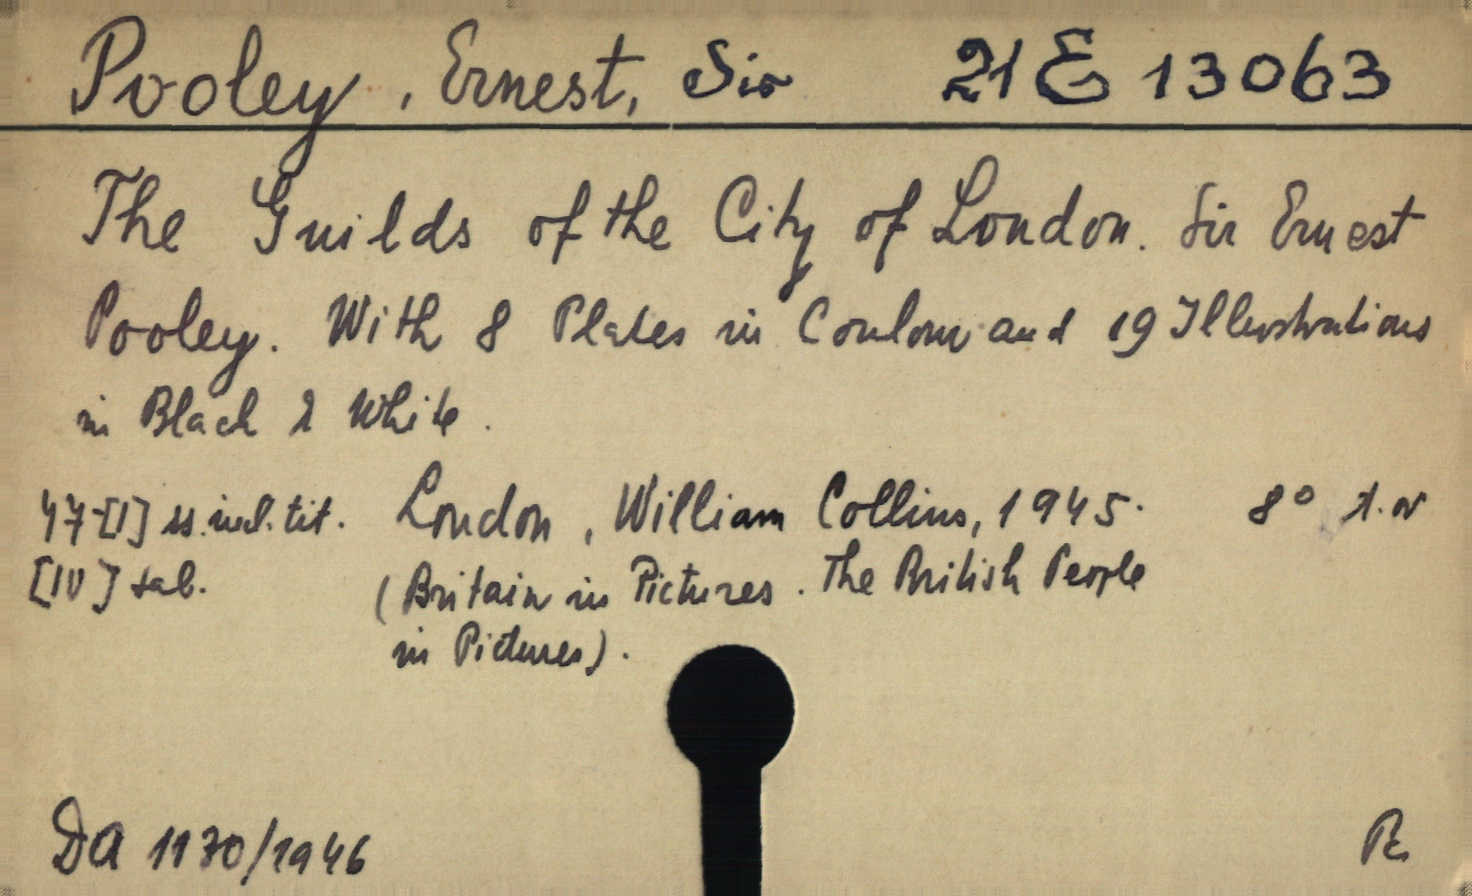 Pooley, Ernest, Sir 21 E 13063
The Guilds of the City of London. Sir Ernest
Pooley. With 8 Plates in Coulour and 19 Illustrations
in Black & White.
47-[1] ss. incl. tit. London, William Collins, 1945. 8°
[IV] tab. (Britain in Pictures. The British People
in Pictures).
Da 1170/1946